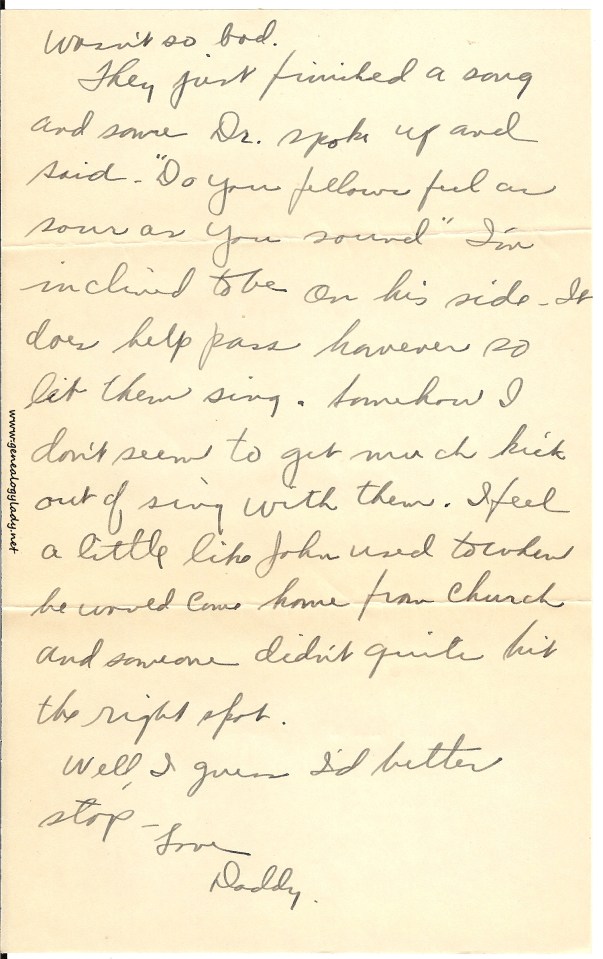 wasn't so bad.
They just finished a song
and some Dr. spoke up and
said - "Do you fellows feel as
sour as you sound" I'm
inclined to be on his side - It
does help pass however so
let them sing. Somehow I
don't seem to get much kick
out of sing with them. I feel
a little like John used to when
he would come home from church
and someone didn't quite hit
the right spot.
Well, I guess I'd better
stop -
Love
Daddy.
www.genealogylady.net